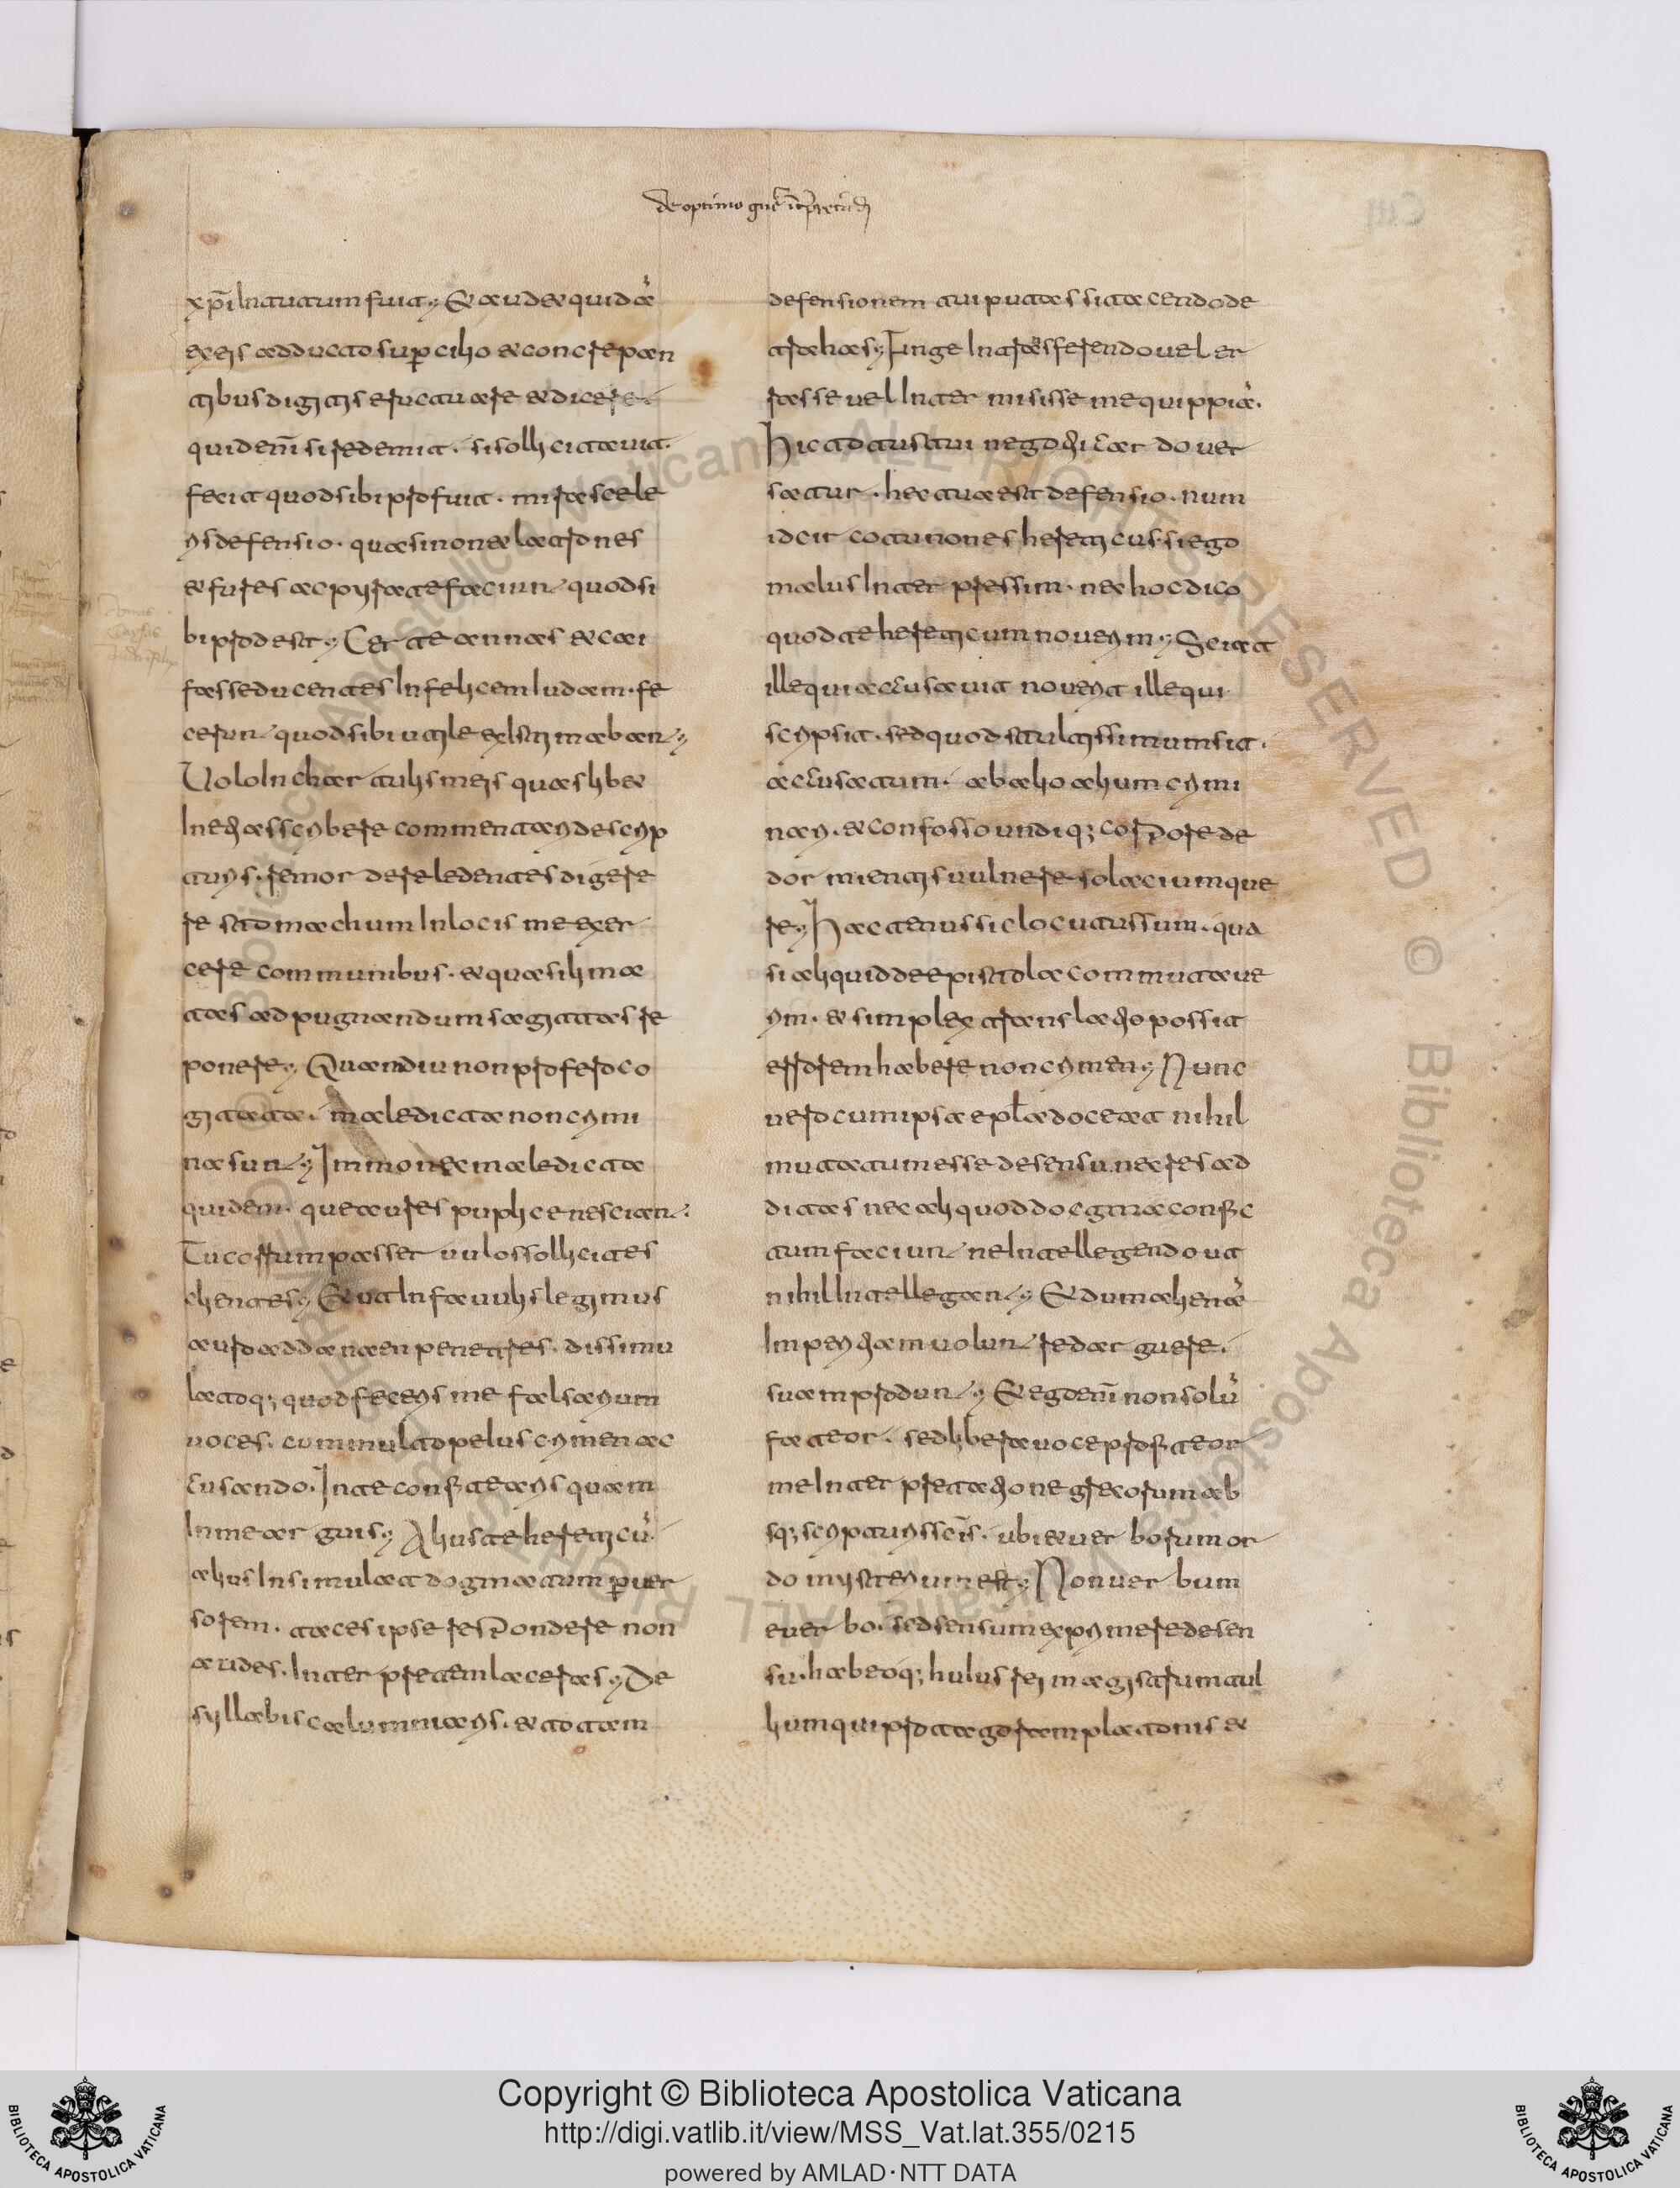 de optimo gn̄e īt̄p̄retādi
xp̄i Intuitum fuit; Et audet quidā
exeis adducto sup̱cilio et concrepan
tibus digitis eructuare et dicere
quidenī si redemit. si sollicitauit.
fecit quod sibi profuit. mira scele
ris defensio. quasi non et latrones
et fures ac pyratefaciunt quod si
bi prodest; Certe annas et cai
fas seducentes Infelicem Iudam. fe
cerunt quod sibi utile existimaban;
Uolo In chartulis meis quaslibet
Ineptias scribere commentari de scrip
turis. remordere ledentes digere
re stomachum In locis me exer
cere communibus. et quasi lima
tas ad pugnandum sagittas re
ponere; Quandiu non profero co
gitata. maledicta non crimi
na sun; Immo nec maledicta
quidem. que aures puplice nescian.
Tu corrumpas seruulos sollicites
clientes; Et ut In fauulis legimus
auro ad danaen penetres. dissimu
latoq; quod feceris me falsarium
uoces. cum multo peius crimen ac
cusando. In te confitearis quam
In me arguis; Alius te hereticū.
alius Insimulat dogmatum p̱uer
sorem. taces ipse respondere non
audes. Interpretem laceras; De
syllabis calumniaris. et totam
defensionem tui putas si tacendo de
trahas; Finge In trāsferendo uel er
rasse uel Inter misisse me quippiā.
Hic totus tui negotii cardo uer
satur. hec tua est defensio. num
idcirco tu non es hereticus. si ego
malus Interpres sim. nec hoc dico
quod te hereticum nouerim; Sciat
ille qui accusauit nouerit ille qui
scripsit. sed quod stultissimum sit.
accusatum. ab alio alium crimi
nari. et confosso undiq; corpore de
dormientis uulnere solacium que
re; Hactenus sic locutus sum. qua
si aliquid de epistola commutaue
rim. et simplex translatio possit
errorem habere non crimen; Nunc
uero cum ipsa ep̄la doceat nihil
mutatum esse de sensu. nec res ad
ditas nec aliquod docgma confic
tum faciun nelntellegendo ut
nihil Intellegan; Et dum alienā
Imperitiam uolun redarguere.
suam produn; Et ego enī non solū
fateor. sed libera uoce profiteor
me Inter pretatione grecorum ab
sq; scripturis scīs. ubi et uerborum or
do mysterium est; Non uerbum
e uerbo. sed sensum exprimere de sen
su. habeoq; huius rei magistrum tul
lium qui protagoram platonis et